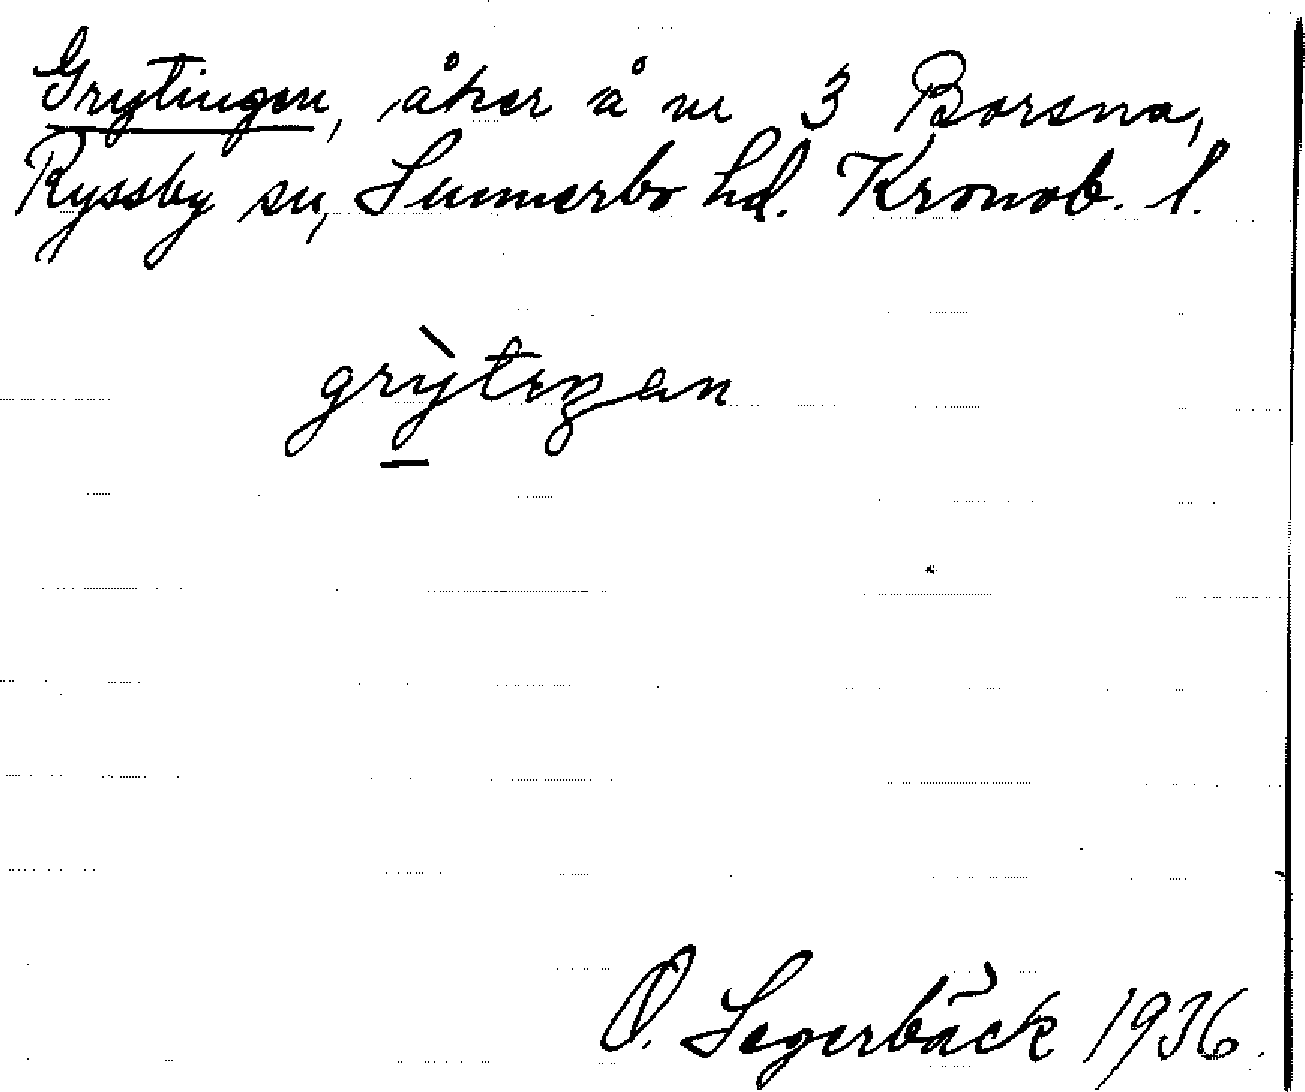 Grytingen, åker å nr 3 Borsna,
Ryssby sn, Sunnerbo hd. Kronob. l.
grỳtiŋan
O. Segerbäck 1936.